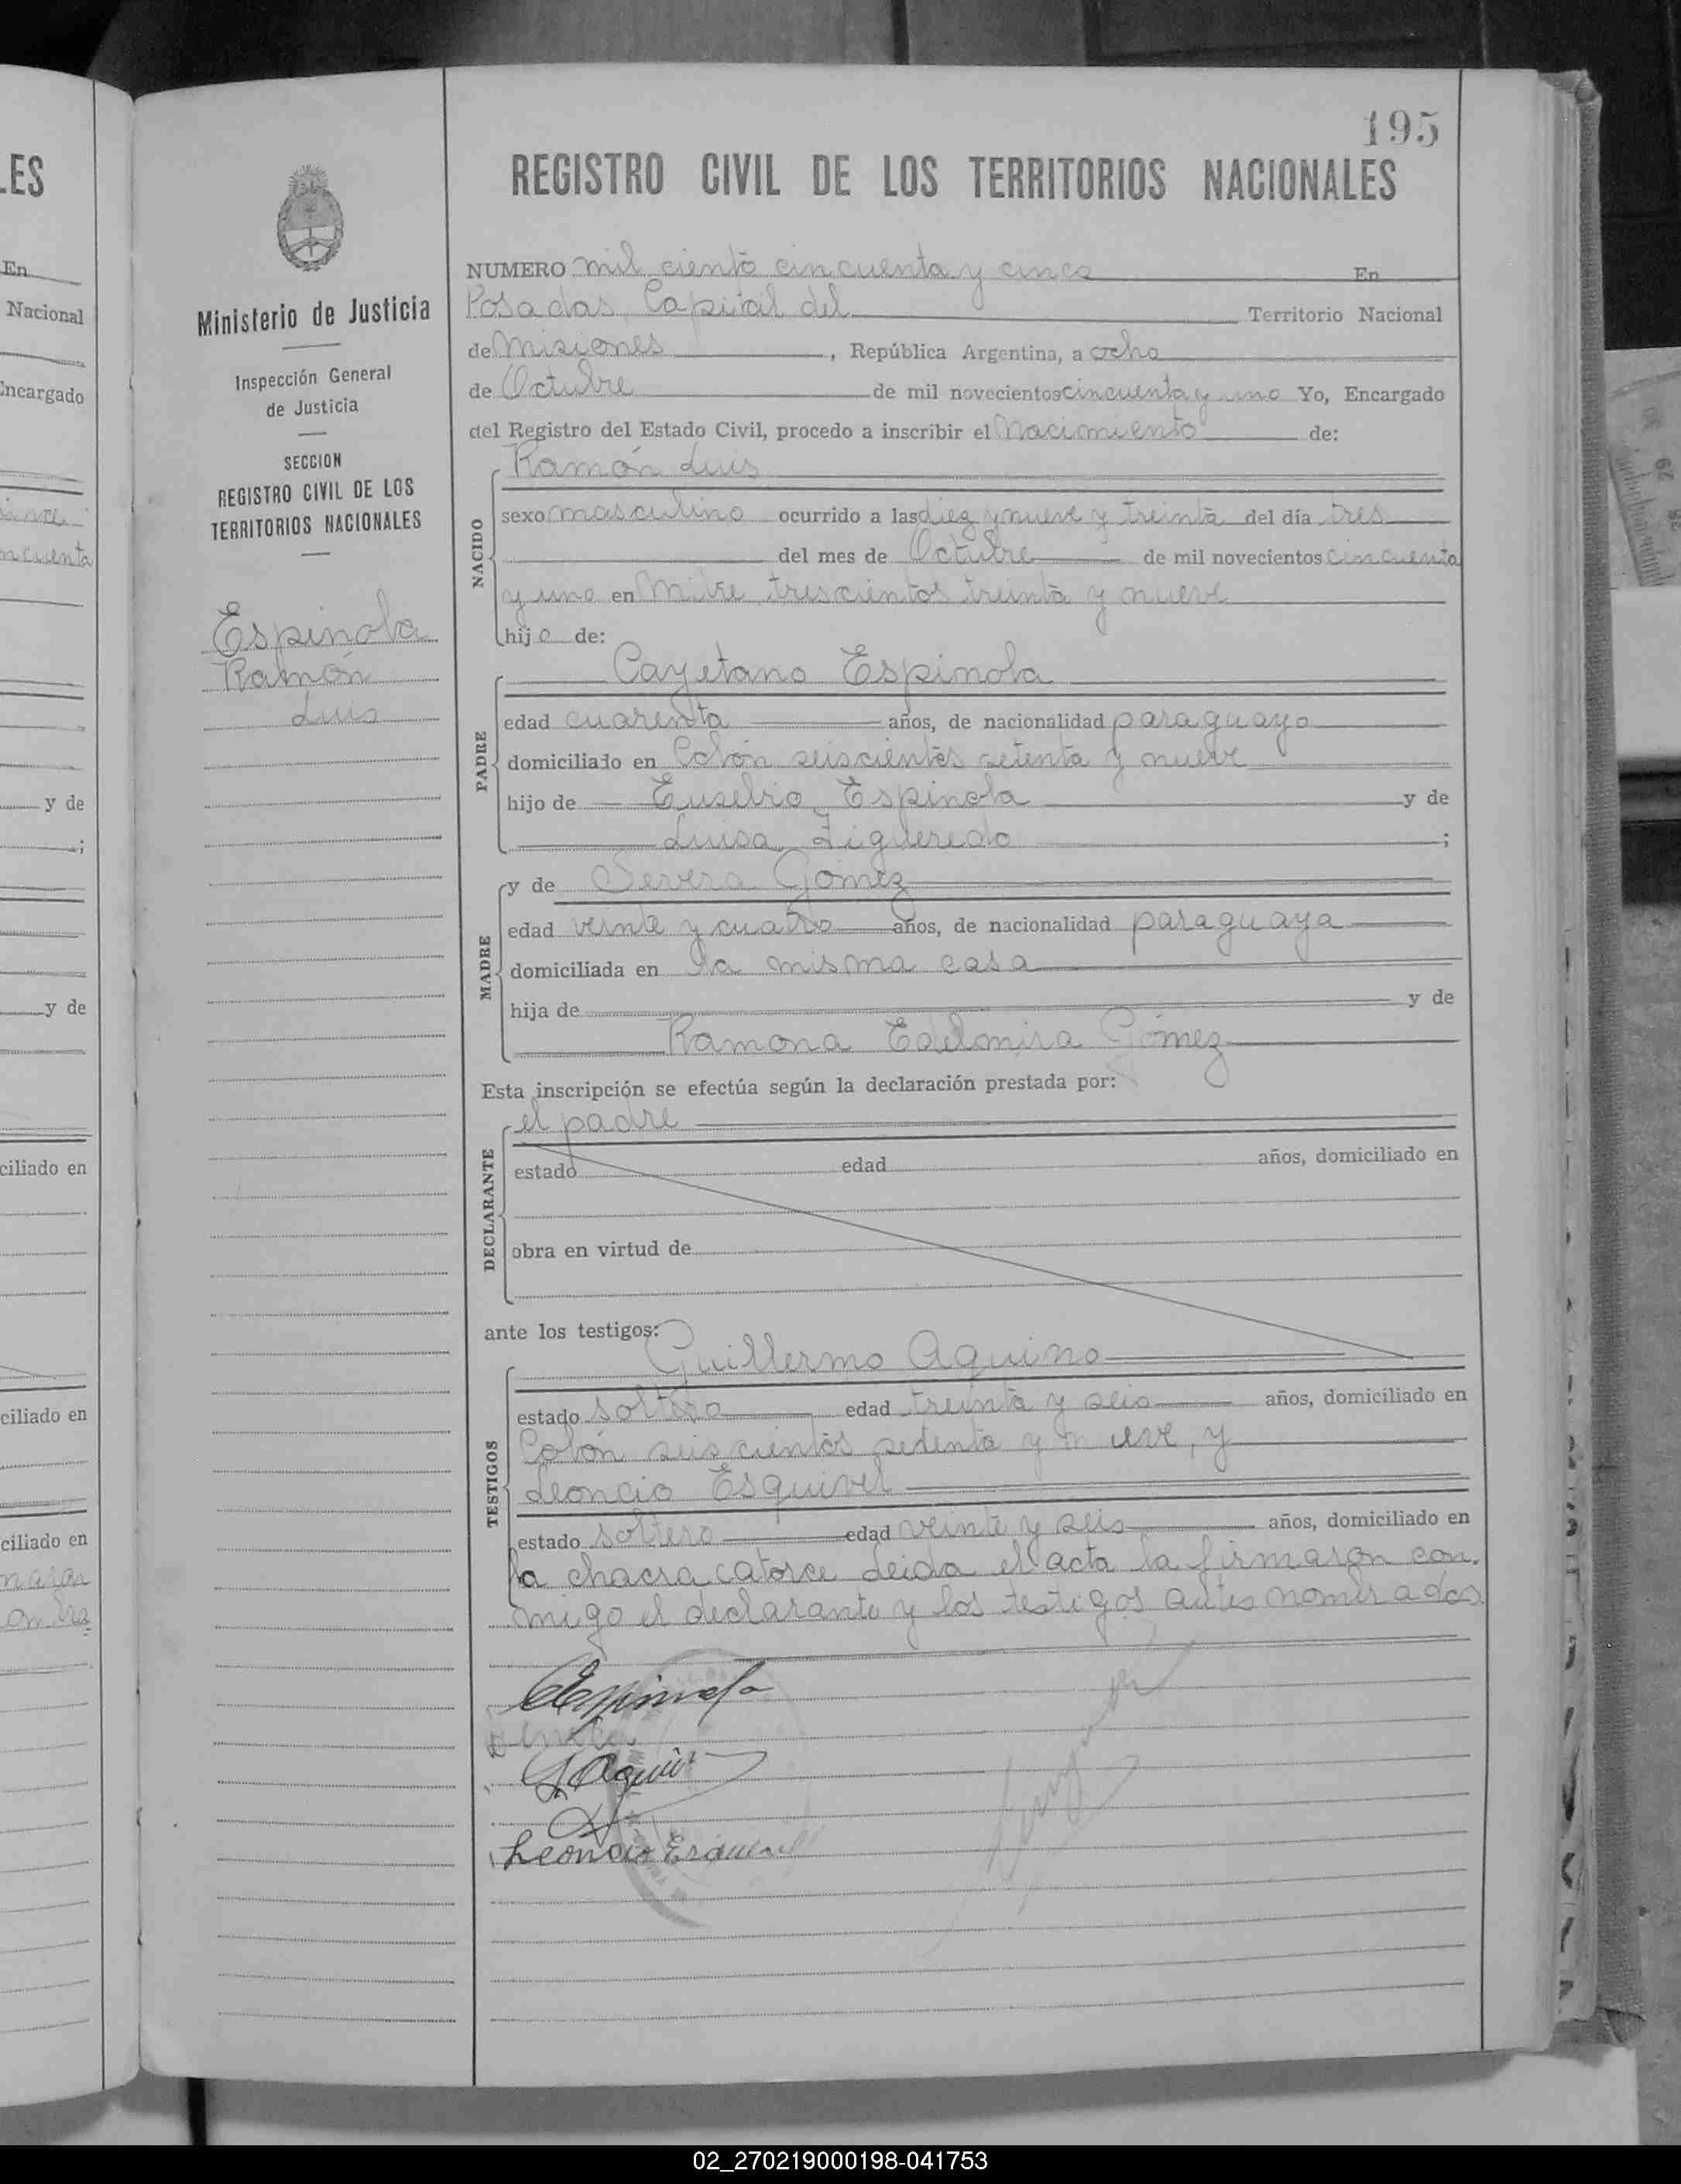 195
REGISTRO CIVIL DE LOS TERRITORIOS NACIONALES
LES
En
Nacional
Encargado
ncuenta
y de
y de
ciliado en
ciliado en
ciliado en
Ministerio de Justicia
Inspección General
de Justicia
SECCION
REGISTRO CIVIL DE LOS
TERRITORIOS NACIONALES
Espinola
Ramón
Luis
NUMERO mil ciento cincuenta y cinco En
Posadas, Capital del Territorio Nacional
de Misiones, República Argentina, a ocho
de Octubre de mil novecientos cincuenta y uno Yo, Encargado
del Registro del Estado Civil, procedo a inscribir el Nacimiento de:
Ramón Luis
NACIDO
sexo masculino ocurrido a las diez y nueve y treinta del día tres
del mes de Octubre de mil novecientos cincuenta
y uno en Mitre, trescientos treinta y nueve
hijo de:
Cayetano Espinola
PADRE
edad cuarenta años, de nacionalidad paraguayo
domiciliado en Colón seiscientos setenta y nueve
hijo de Eusebio Espinola y de
Luisa Figueredo ;
MADRE
y de Severa Gómez
edad veinte y cuatro años, de nacionalidad paraguaya
domiciliada en la misma casa
hija de y de
Ramona Edelmira Gómez
Esta inscripción se efectúa según la declaración prestada por:
el padre
DECLARANTE
estado edad años, domiciliado en
obra en virtud de
ante los testigos:
Guillermo Aquino
TESTIGOS
estado soltero edad treinta y seis años, domiciliado en
Colón seiscientos setenta y nueve, y
Leoncio Esquivel
estado soltero edad veinte y seis años, domiciliado en
la chacra catorce Leida el acta la firmaron con.
migo el declarante y los testigos antes nombrados
CEspinola
G. Aquino
Leoncio Esquivel
02_270219000198-041753